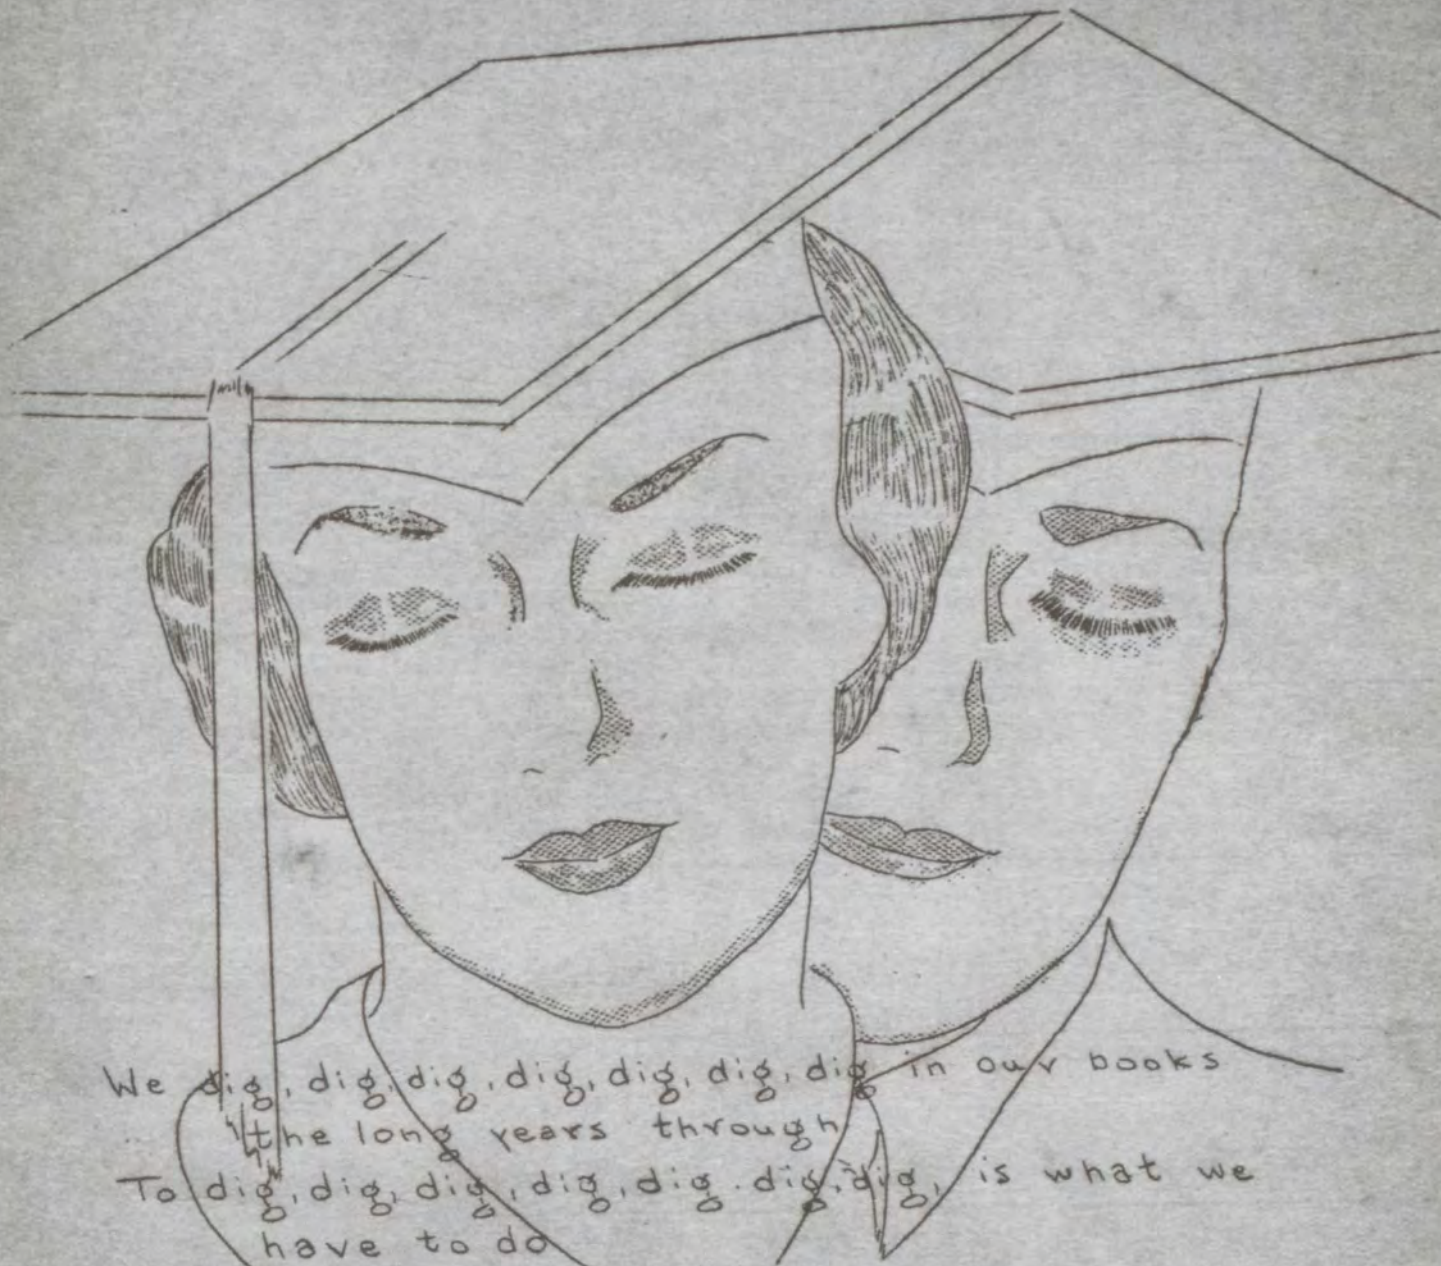 We dig, dig, dig, dig, dig, dig, dig in our books
'the long years through
To dig, dig, dig, dig, dig. dig, dig, is what we
have to do